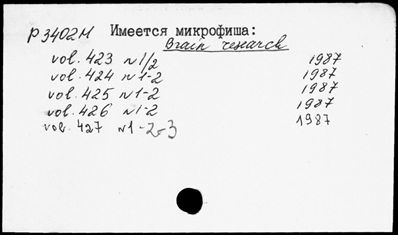 Р 3402М Имеется микрофиша:
Brain research
vol. 423 N 1/2 1987
vol. 424 N 1-2 1987
vol. 425 N 1-2 1987
vol. 426 N 1-2 1987
vol. 427 N 1-2-3 1987